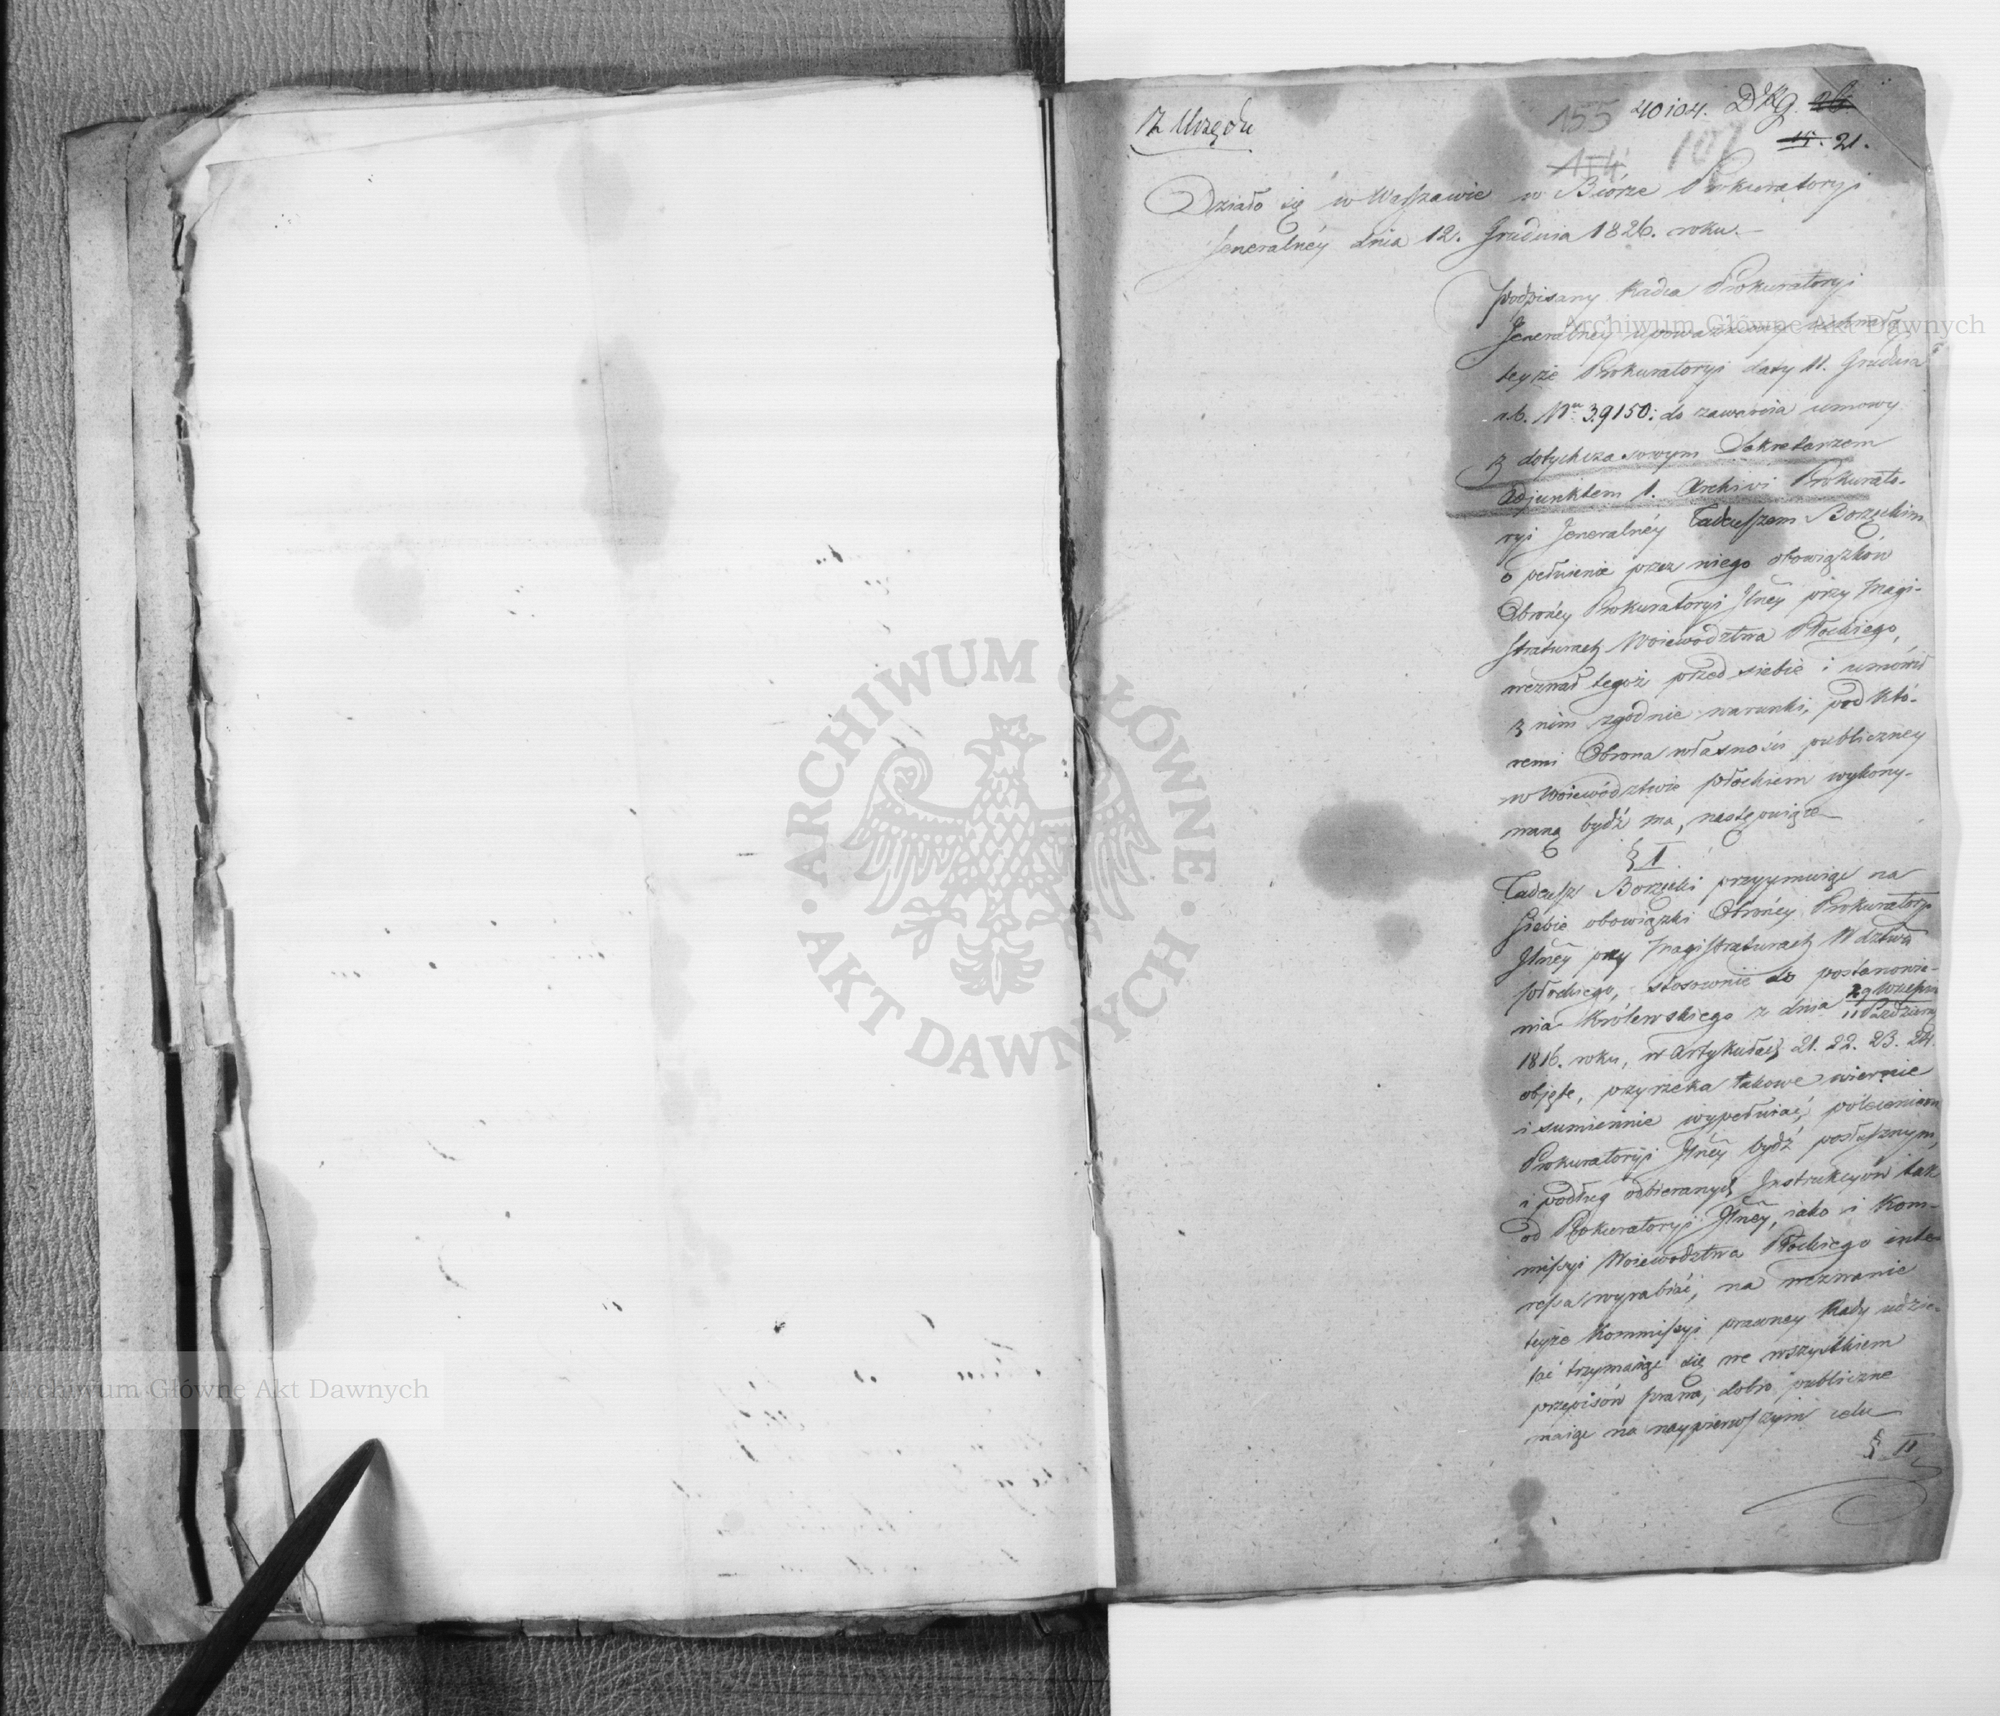 Z Urzędu
155 40104. DKg.
154 107 21.
Działo się w Warszawie w Biórze Prokuratoryi
Jeneralney dnia 12. Grudnia 1826. roku.
Podpisany Radca Prokuratoryi
Jeneralney upoważniony uchwałą
teyże Prokuratoryi daty 11. Grudnia
r.b. Nru 39150: do zawarcia umowy
z dotychczasowym Sekretarzem
Adjunktem 1. Archivi Prokurato-
ryi Jeneralnéy Tadeuszem Borzęckim
o pełnienie przez niego obowiązków
Obrońcy Prokuratoryi Jlnéy przy Magi-
straturach Woiewództwa Płockiego,
wezwał tegoż przed siebie i umówił
z nim zgodnie warunki, pod któ-
remi Obrona własności publiczney
w Woiewództwie płockiem wykony-
waną bydź ma, następuiące
§ I.
Tadeusz Borzęcki przyymuiąc na
siebie obowiązki Obrońcy Prokuratoryi
Jlnéy przy Magistraturach Wdztwa
płockiego, stosownie do postanowie-
nia Królewskiego z dnia 29 Wrześn 11 Paździer
1816. roku, w Artykułach 21. 22. 23. 24.
objęte, przyrzeka takowe wiernie
i sumiennie wypełniać, poleceniom
Prokuratoryi Jlnéy bydź posłusznym,
i podług odbieranych Instrukcyów tak
od Prokuratoryi Jlnéy, iako i Kom-
missyi Woiewództwa Płockiego inte-
ressa wyrabiać, na wezwanie
teyże Kommissyi prawney Rady udzie-
lać trzymaiąc się we wszystkiem
przepisów prawa, dobro publiczne
maiąc na naypierwszym celu
§ II
Archiwum Główne Akt Dawnych
Archiwum Główne Akt Dawnych
ARCHIWUM GŁÓWNE
AKT DAWNYCH